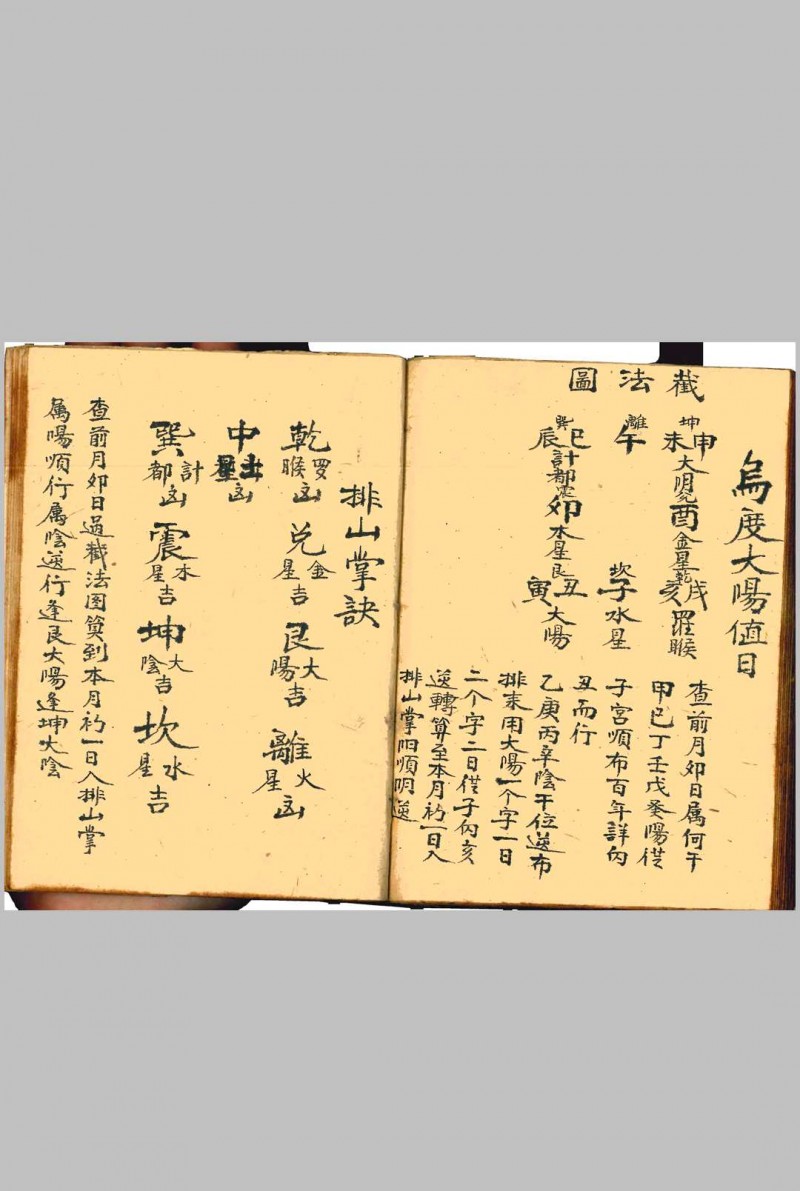 烏度大陽值日
截法圖
坤
申
未
大明
兌
酉
金星
乾
戌
亥
羅睺
離
午
坎
子
水星
巽
巳
辰
計都
震
卯
木星
艮
丑
寅
大陽
查前月卯日属何干
甲己丁壬戊癸陽從
子宮順布百年詳內
丑而行
乙庚丙辛陰干位逆布
排來用大陽一个字一日
二个字二日從子內亥
逆轉算至本月初一日入
排山掌四順明逆
排山掌訣
乾 罗睺凶
兌 金星吉
艮 大陽吉
離 火星凶
中 土星凶
巽 計都凶
震 木星吉
坤 大陰吉
坎 水星吉
查前月卯日過截法图算到本月初一日入排山掌
属陽順行属陰逆行逢艮大陽逢坤大陰